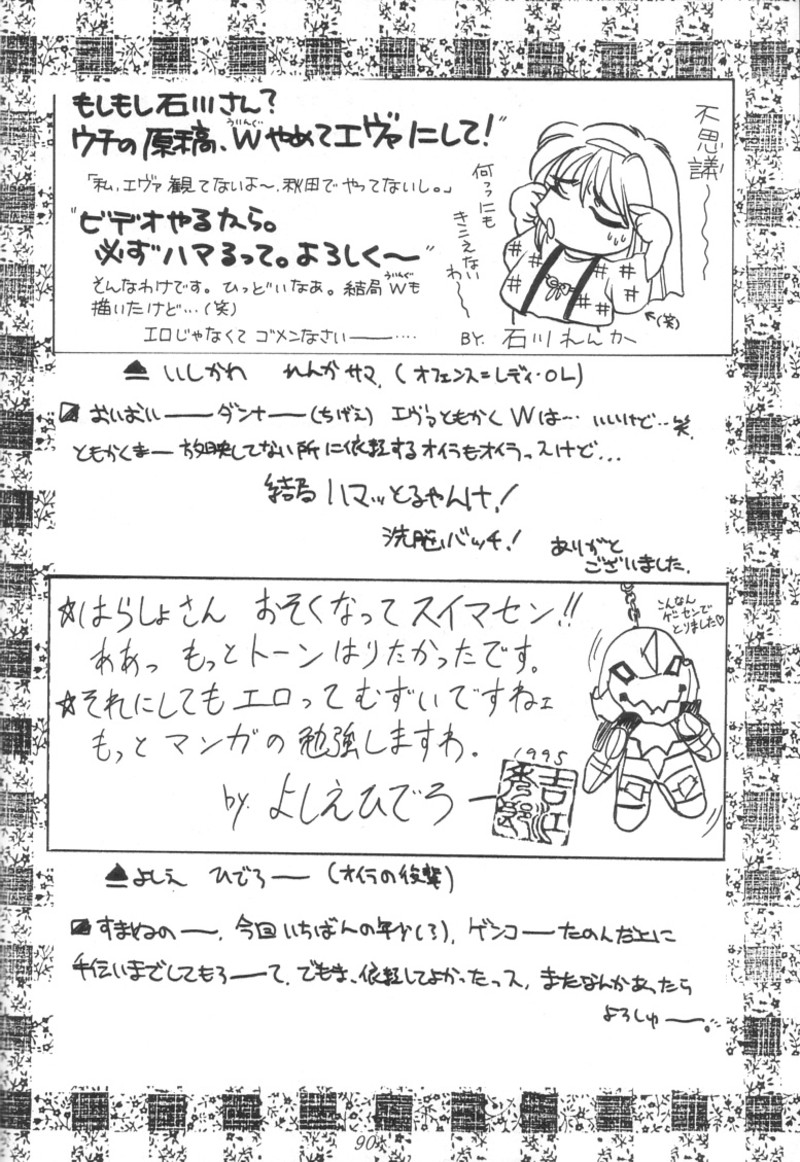 もしもし石川さん?
ウチの原稿、Wやめてエヴァにして!"
うぃんぐ
「私、エヴァ観てないよ〜、秋田でやってないし。」
"ビデオやるから。
必ずハマるって。よろしく〜"
そんなわけです。ひっどいなあ。結局Wも
うぃんぐ
描いたけど…(笑)
エロじゃなくてゴメンなさい——‥‥
不思議〜〜
何っにも
きこえない
わ〜〜
←(笑)
BY. 石川れんか
▲ いしかわ れんかサマ (オフェンス=レディ・OL)
おいおい——ダンナ——(ちげえ) エヴァともかくWは… いいけど…笑
ともかくまー放映してない所に依頼するオイラもオイラっスけど…
結局ハマッとるやんけ!
洗脳バッチ!
ありがと
ございました.
☆はらしょさん おそくなってスイマセン!!
ああっ もっとトーンはりたかったです。
☆それにしてもエロってむずいですねェ
もっとマンガの勉強しますわ.
by. よしえひでろー
1995
こんなん
ゲーセンで
とりました♡
▲よしえ ひでろー (オイラの後輩)
すまねぬの——, 今回いちばんの年少(3), ゲンコ——たのんだ上に
手伝いまでしてもろ——て, でもさ、依頼してよかったっス, またなんかあったら
よろしゅ——。
90